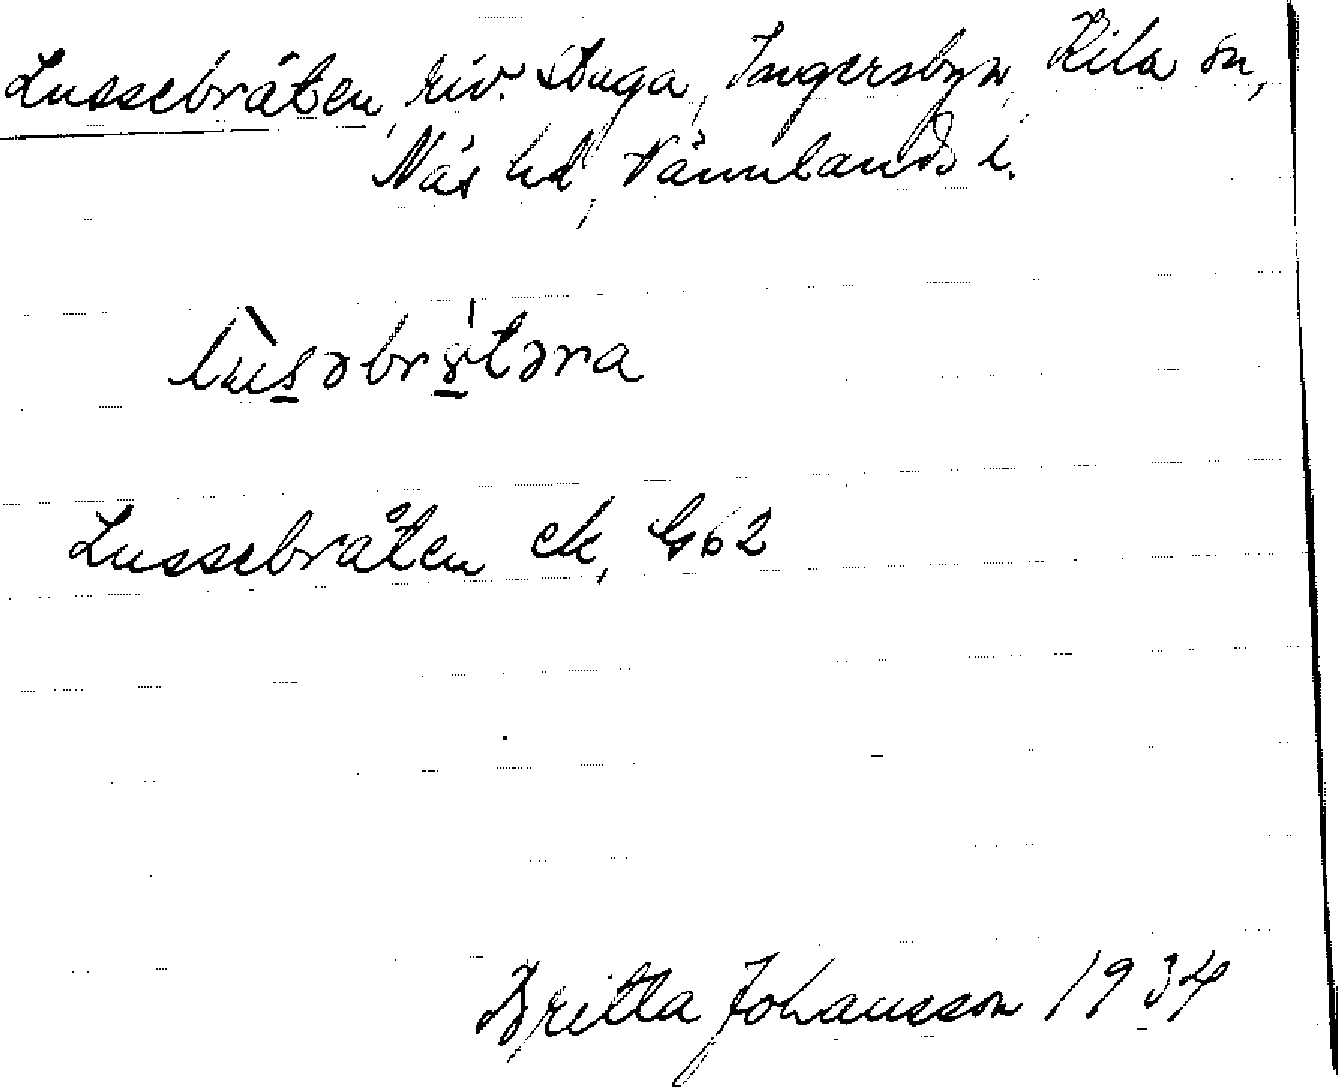 Lussebråten, riv. stuga, Ingersbyn, Kila sn,
Näs hd, Värmlands l.
Lussebråten ek, G62
Britta Johansson 1934